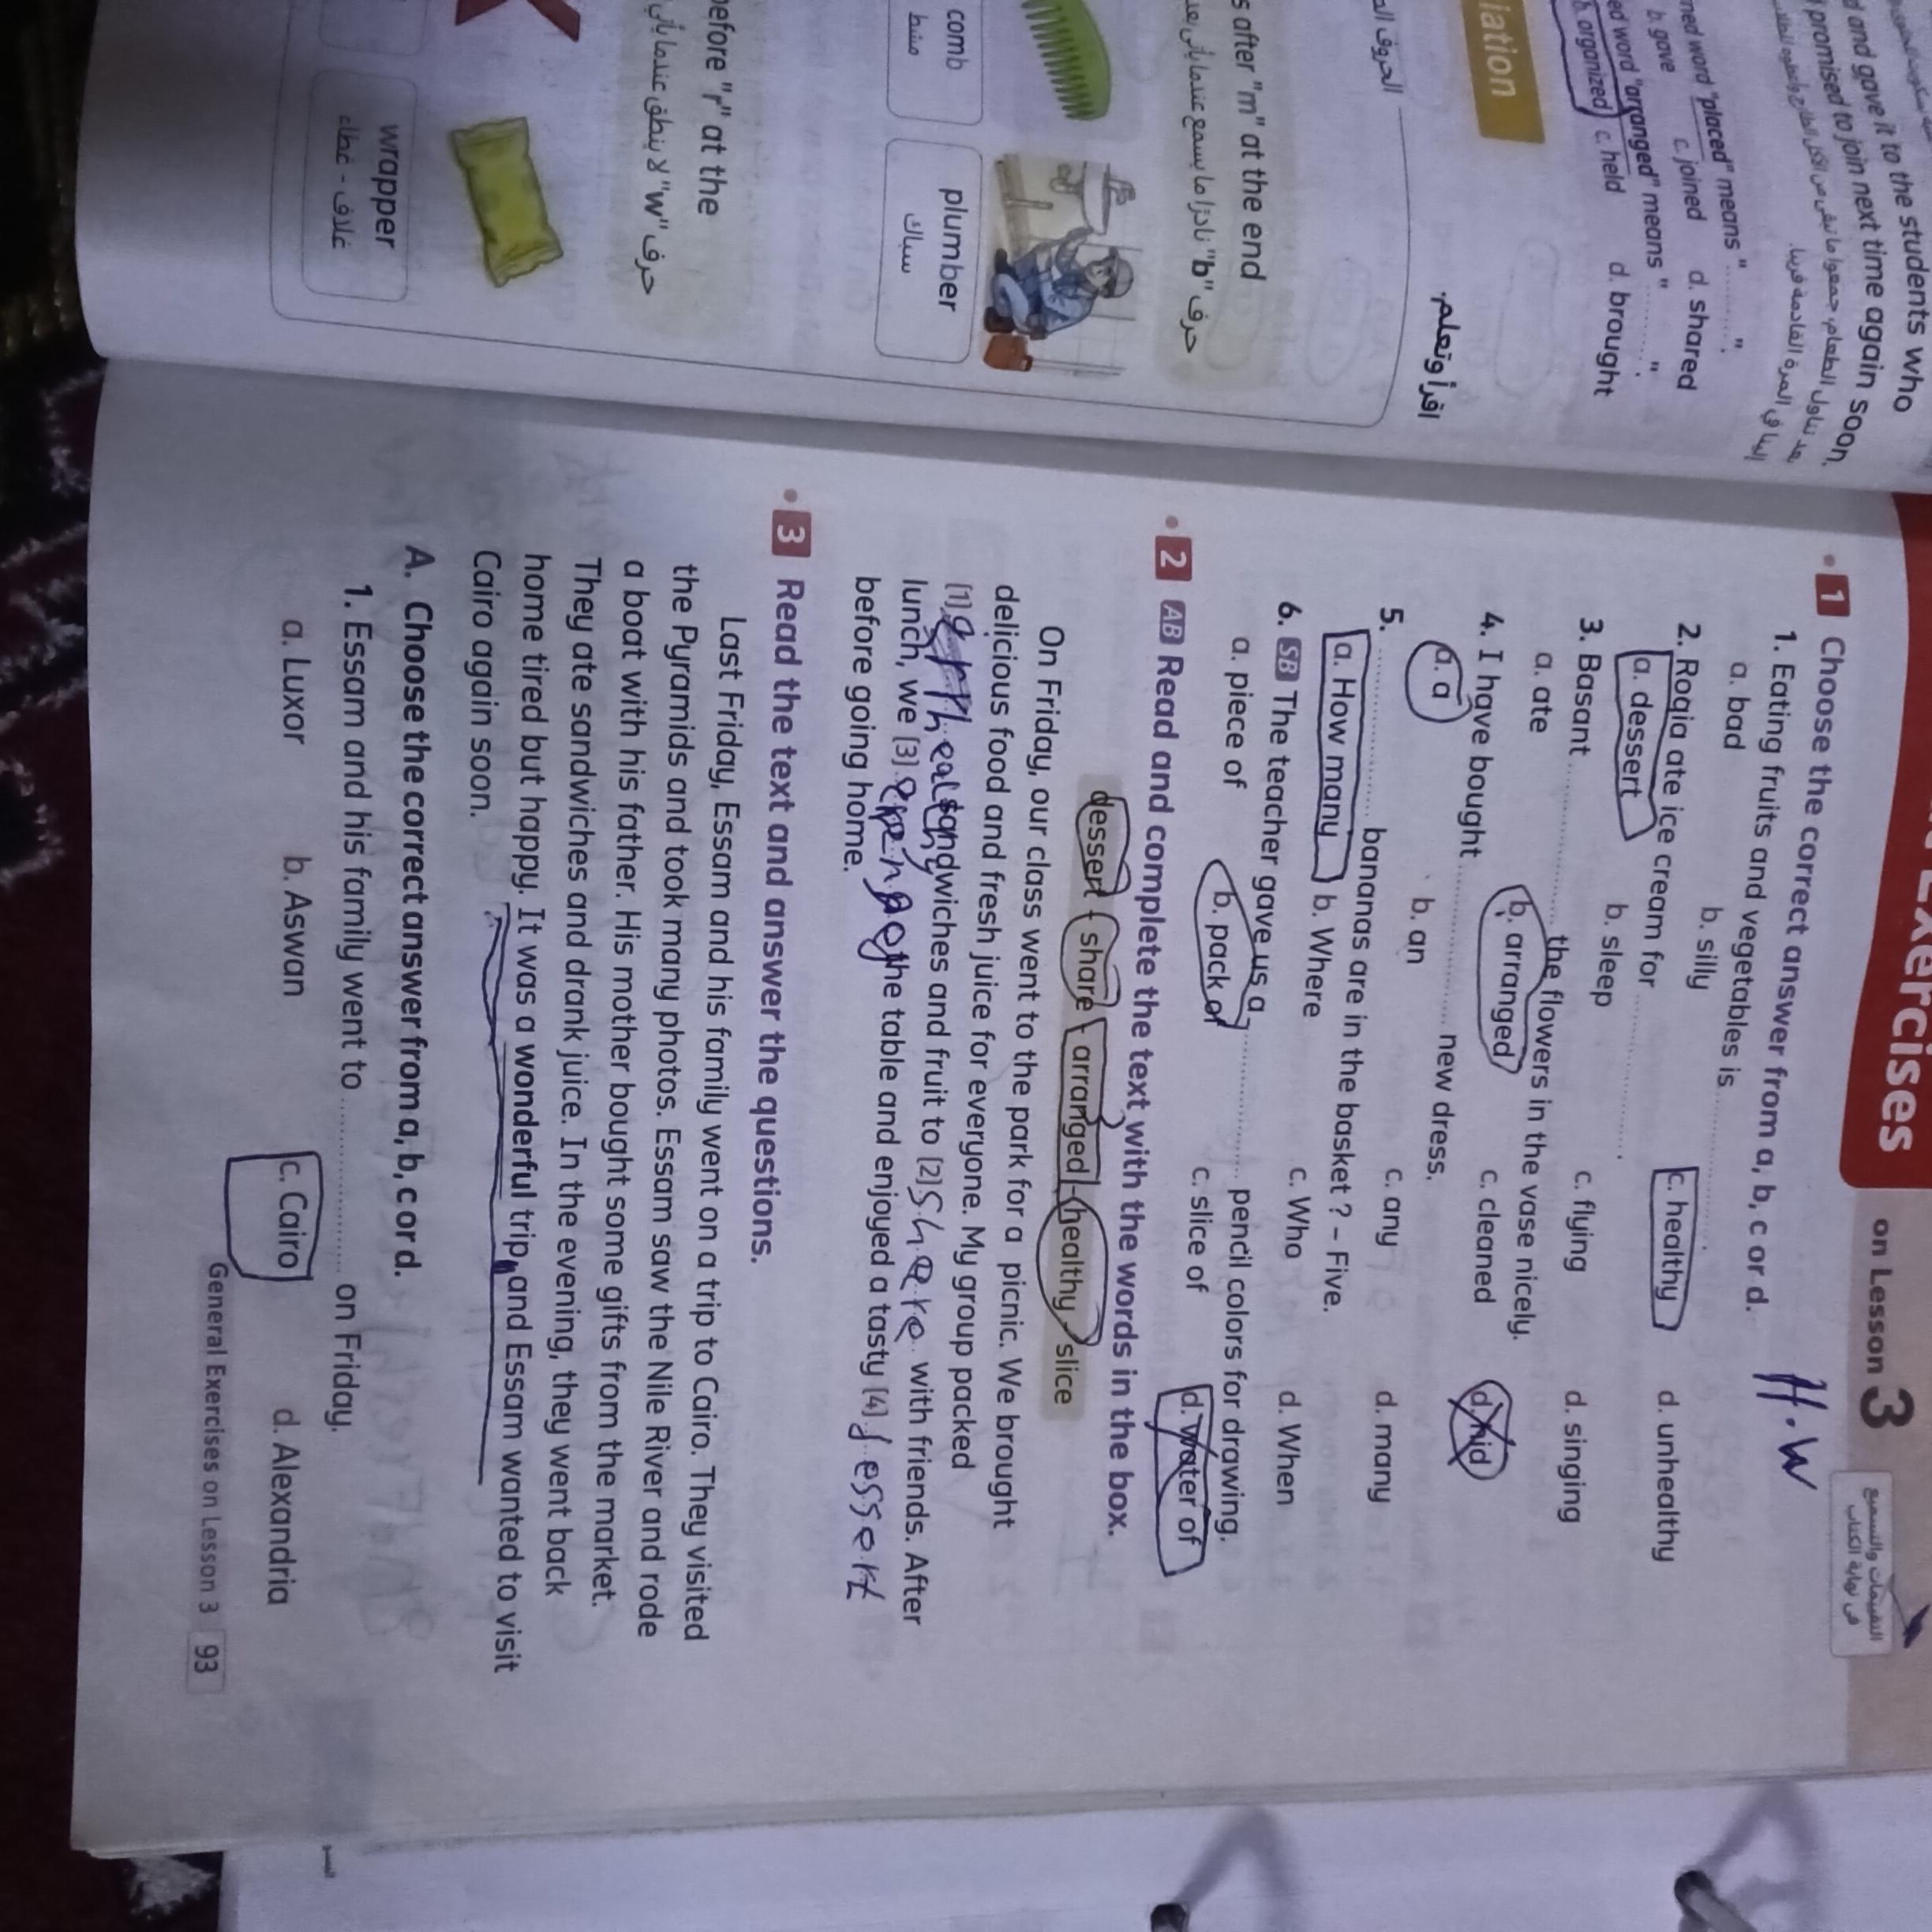 d and gave it to the students who
promised to join next time again soon.
ned word "placed" means "..........".
b. gave c. joined d. shared
ed word "arranged" means "..........".
b. organized c. held d. brought
iation
اقرأ وتعلم.
s after "m" at the end
comb
مشط
plumber
سباك
before "r" at the
حرف "w" لا ينطق عندما يأتي
wrapper
غلاف - غطاء
Exercises on Lesson 3
التقييمات والتسميع
في نهاية الكتاب
H.W
1 Choose the correct answer from a, b, c or d.
1. Eating fruits and vegetables is ..........
a. bad b. silly c. healthy d. unhealthy
2. Roqia ate ice cream for ..........
a. dessert b. sleep c. flying d. singing
3. Basant .......... the flowers in the vase nicely.
a. ate b. arranged c. cleaned d. hid
4. I have bought .......... new dress.
a. a b. an c. any d. many
5. .......... bananas are in the basket? – Five.
a. How many b. Where c. Who d. When
6. SB The teacher gave us a .......... pencil colors for drawing.
a. piece of b. pack of c. slice of d. water of
2 AB Read and complete the text with the words in the box.
dessert - share - arranged - healthy - slice
On Friday, our class went to the park for a picnic. We brought
delicious food and fresh juice for everyone. My group packed
(1) healthy sandwiches and fruit to (2) share with friends. After
lunch, we (3) the table and enjoyed a tasty (4) dessert
before going home.
3 Read the text and answer the questions.
Last Friday, Essam and his family went on a trip to Cairo. They visited
the Pyramids and took many photos. Essam saw the Nile River and rode
a boat with his father. His mother bought some gifts from the market.
They ate sandwiches and drank juice. In the evening, they went back
home tired but happy. It was a wonderful trip, and Essam wanted to visit
Cairo again soon.
A. Choose the correct answer from a, b, c or d.
1. Essam and his family went to .......... on Friday.
a. Luxor b. Aswan c. Cairo d. Alexandria
General Exercises on Lesson 3 93